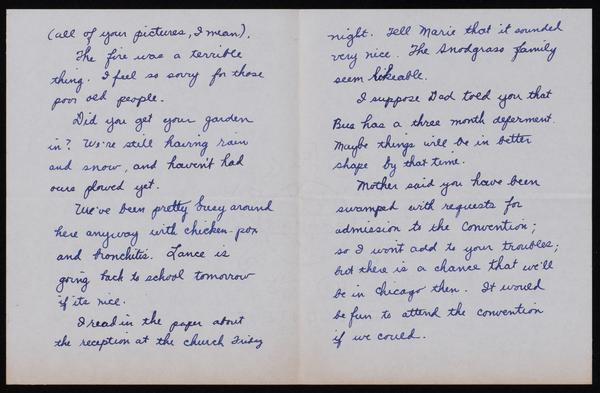 (all of your pictures, I mean).
The fire was a terrible
thing. I feel so sorry for those
poor old people.
Did you get your garden
in? We're still having rain
and snow, and haven't had
ours plowed yet.
We've been pretty busy around
here anyway with chicken-pox
and bronchitis. Lance is
going back to school tomorrow
if its nice.
I read in the paper about
the reception at the church Friday
night. Tell Marie that it sounded
very nice. The Snodgrass family
seem likeable.
I suppose Dad told you that
Bus has a three month deferment.
Maybe things will be in better
shape by that time.
Mother said you have been
swamped with requests for
admission to the Convention;
so I won't add to your troubles;
but there is a chance that we'll
be in Chicago then. It would
be fun to attend the convention
if we could.